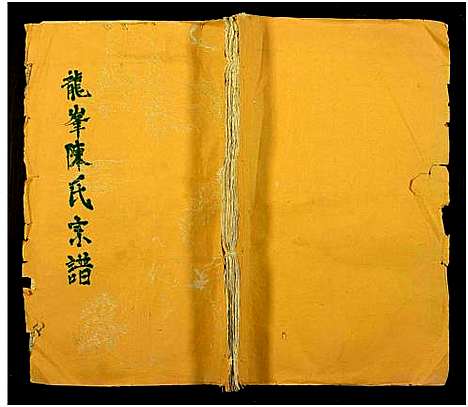 龍峯陳氏宗譜